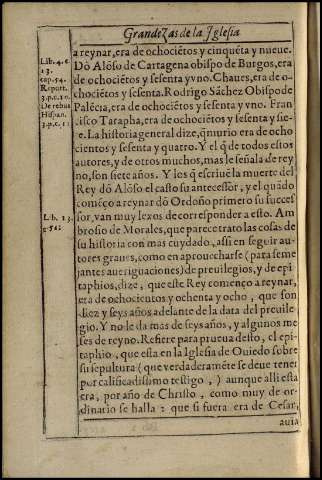 Grandezas de la Iglesia
a reynar, era de ochociẽtos y cinquẽta y nueue.
Dõ Alõso de Cartagena obispo de Burgos, era
de ochociẽtos y sesenta y vno. Chaues, era de o-
chociẽtos y sesenta. Rodrigo Sãchez Obispo de
Palẽcia, era de ochociẽtos y sesenta y vno. Fran
cisco Tarapha, era de ochociẽtos y sesenta y sie-
e. La historia general dize, q̃ murio era de ocho
cientos y sesenta y quatro. Y el q̃ de todos estos
autores, y de otros muchos, mas le señala de rey
no, son siete años. Y los q̃ escriuẽ la muerte del
Rey dõ Alõso el casto su antecessor, y el quãdo
començo a reynar dõ Ordoño primero su succes
sor, van muy lexos de corresponder a esto. Am
brosio de Morales, que parece trato las cosas de
su historia con mas cuydado, assi en seguir au-
tores graues, como en aprouecharse (para seme
jantes aueriguaciones) de preuilegios, y de epi
taphios, dize, que este Rey començo a reynar,
era de ochocientos y ochenta y ocho, que son
diez y seys años adelante de la data del preuile
gio. Y no le da mas de seys años, y algunos me
ses de reyno. Refiere para prueua desto, el epi-
taphio, que esta en la Iglesia de Ouiedo sobre
su sepultura (que verdaderamẽte se deue tener
por calificadissimo testigo,) aunque alli esta
era, por año de Christo, como muy de or-
dinario se halla: que si fuera era de Cesar,
auia
Lib. 4. c.
13.
cap. 54.
Report.
3. p. c. 10.
De rebus
Hispan.
3. p. c. 11
Lib. 13.